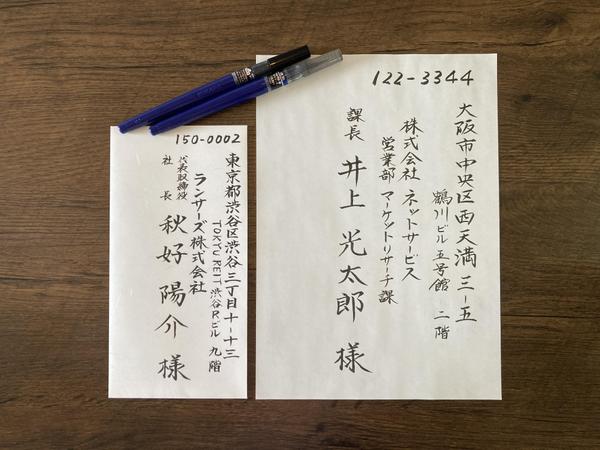 122-3344
大阪市中央区西天満 三-五
鶴川ビル 五号館 二階
株式会社 ネットサービス
営業部 マーケットリサーチ課
課長 井上 光太郎 様
150-0002
東京都渋谷区渋谷三丁目十-十三
TOKYU REIT 渋谷Rビル 九階
ランサーズ株式会社
代表取締役
社長 秋好 陽介 様